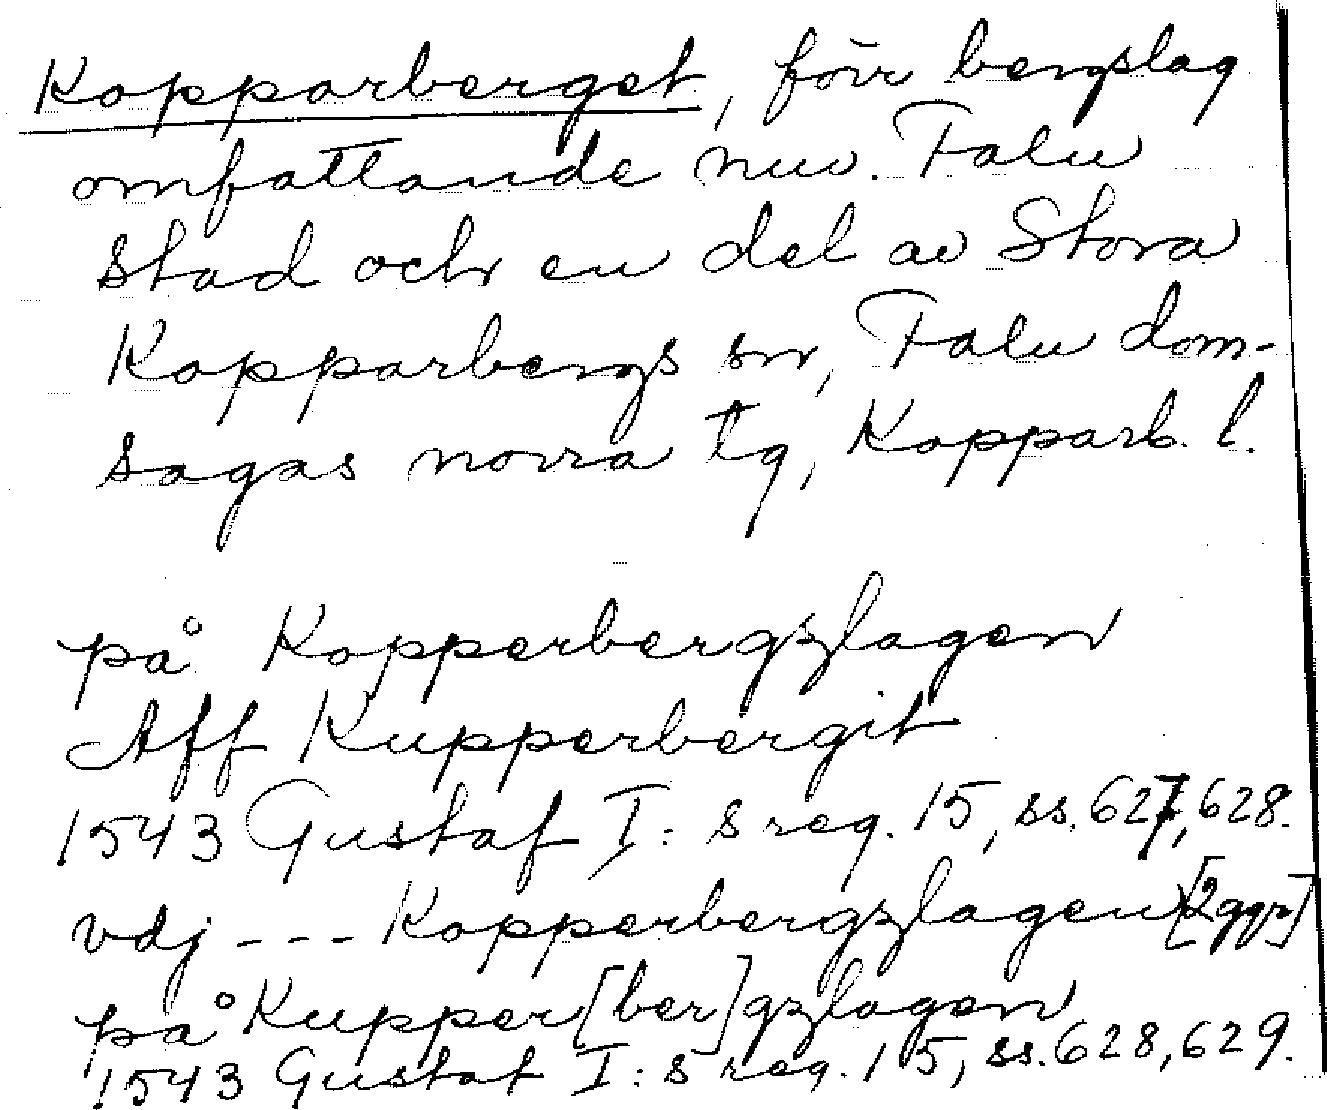 Kopparberget, förr bergslag
omfattande nuv. Falu
stad och en del av Stora
Kopparbergs sn, Falu dom-
sagas norra tg, Kopparb. l.
på Kopperbergzlagen
Aff Kupperbergit
1543 Gustaf I:s reg. 15, ss. 627, 628.
vdj --- Kopperbergzlagen [2 ggr]
på Kupper[ber]gzlagen
1543 Gustaf I:s reg. 15, ss. 628, 629.